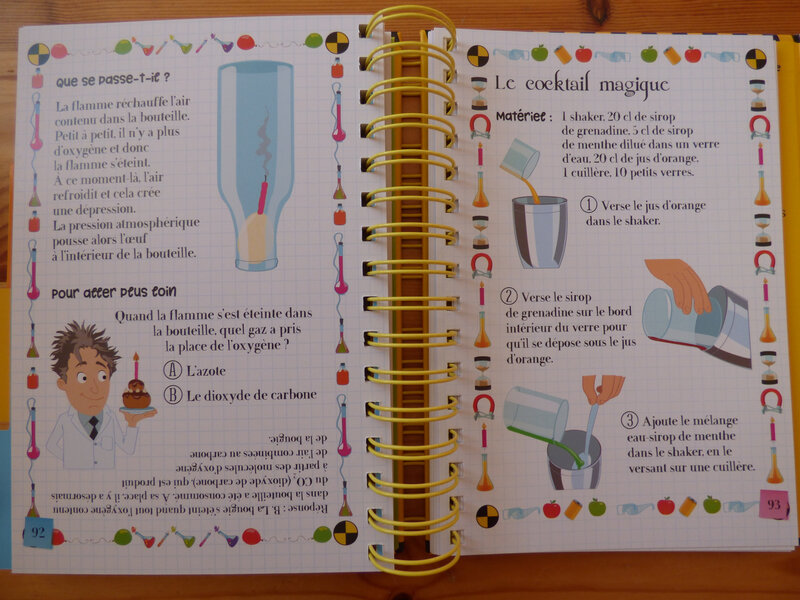 Que se passe-t-il ?
La flamme réchauffe l'air
contenu dans la bouteille.
Petit à petit, il n'y a plus
d'oxygène et donc
la flamme s'éteint.
À ce moment-là, l'air
refroidit et cela crée
une dépression.
La pression atmosphérique
pousse alors l'œuf
à l'intérieur de la bouteille.
Pour aller plus loin
Quand la flamme s'est éteinte dans
la bouteille, quel gaz a pris
la place de l'oxygène ?
A L'azote
B Le dioxyde de carbone
Réponse : B. La bougie s'éteint quand tout l'oxygène contenu
dans la bouteille a été consommé. À sa place, il y a désormais
du CO₂ (dioxyde de carbone) qui est produit
à partir des molécules d'oxygène
de l'air combinées au carbone
de la bougie.
92
Le cocktail magique
Matériel : 1 shaker, 20 cl de sirop
de grenadine, 5 cl de sirop
de menthe dilué dans un verre
d'eau, 20 cl de jus d'orange,
1 cuillère, 10 petits verres.
1 Verse le jus d'orange
dans le shaker.
2 Verse le sirop
de grenadine sur le bord
intérieur du verre pour
qu'il se dépose sous le jus
d'orange.
3 Ajoute le mélange
eau-sirop de menthe
dans le shaker, en le
versant sur une cuillère.
93